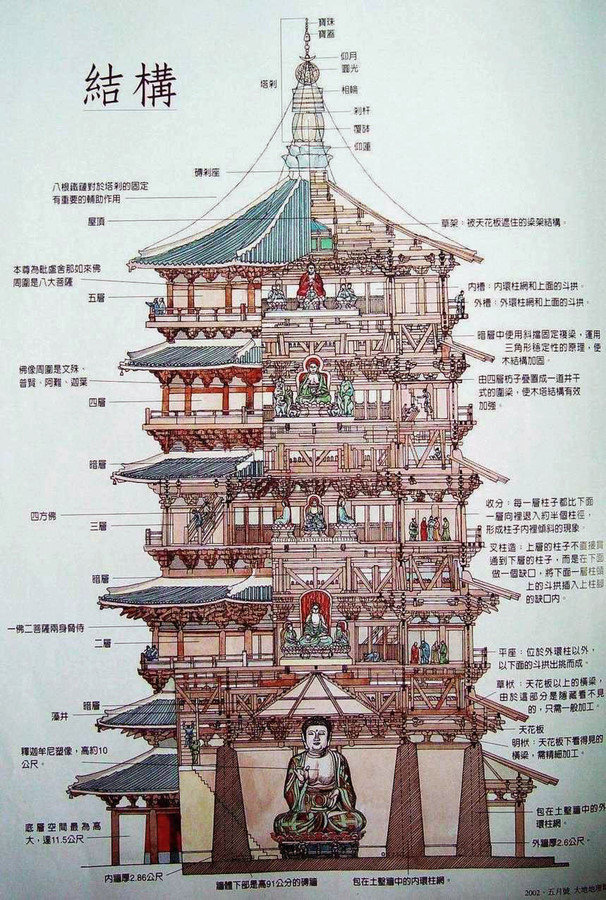 結構
寶珠
寶蓋
仰月
圓光
相輪
剎杆
覆缽
仰蓮
塔剎
磚剎座
八根鐵鏈對於塔剎的固定
有重要的輔助作用
屋頂
草架：被天花板遮住的梁架結構。
本尊為毗盧舍那如來佛
周圍是八大菩薩
五層
內槽：內環柱網和上面的斗拱。
外槽：外環柱網和上面的斗拱。
暗層中使用斜撐固定複梁，運用
三角形穩定性的原理，使
木結構加固。
佛像周圍是文殊、
普賢、阿難、迦葉
四層
由四層枋子疊置成一道井干
式的圈梁，使木塔結構有效
加強。
暗層
四方佛
三層
收分：每一層柱子都比下面
一層向裡退入約半個柱徑，
形成柱子內裡傾斜的現象。
叉柱造：上層的柱子不直接貫
通到下層的柱子，而是在下面
做一個缺口，將下面一層柱頭
上的斗拱插入上柱腳
的缺口內。
暗層
一佛二菩薩兩身脅侍
二層
平座：位於外環柱以外，
以下面的斗拱出挑而成。
草栿：天花板以上的橫梁，
由於這部分是隱藏看不見
的，只需一般加工。
暗層
藻井
天花板
明栿：天花板下看得見的
橫梁，需精細加工。
釋迦牟尼塑像，高約10
公尺。
底層空間最為高
大，達11.5公尺
包在土墼牆中的外
環柱網。
外牆厚2.6公尺。
內牆厚2.86公尺
牆體下部是高91公分的磚牆
包在土墼牆中的內環柱網。
2002．五月號 大地地理